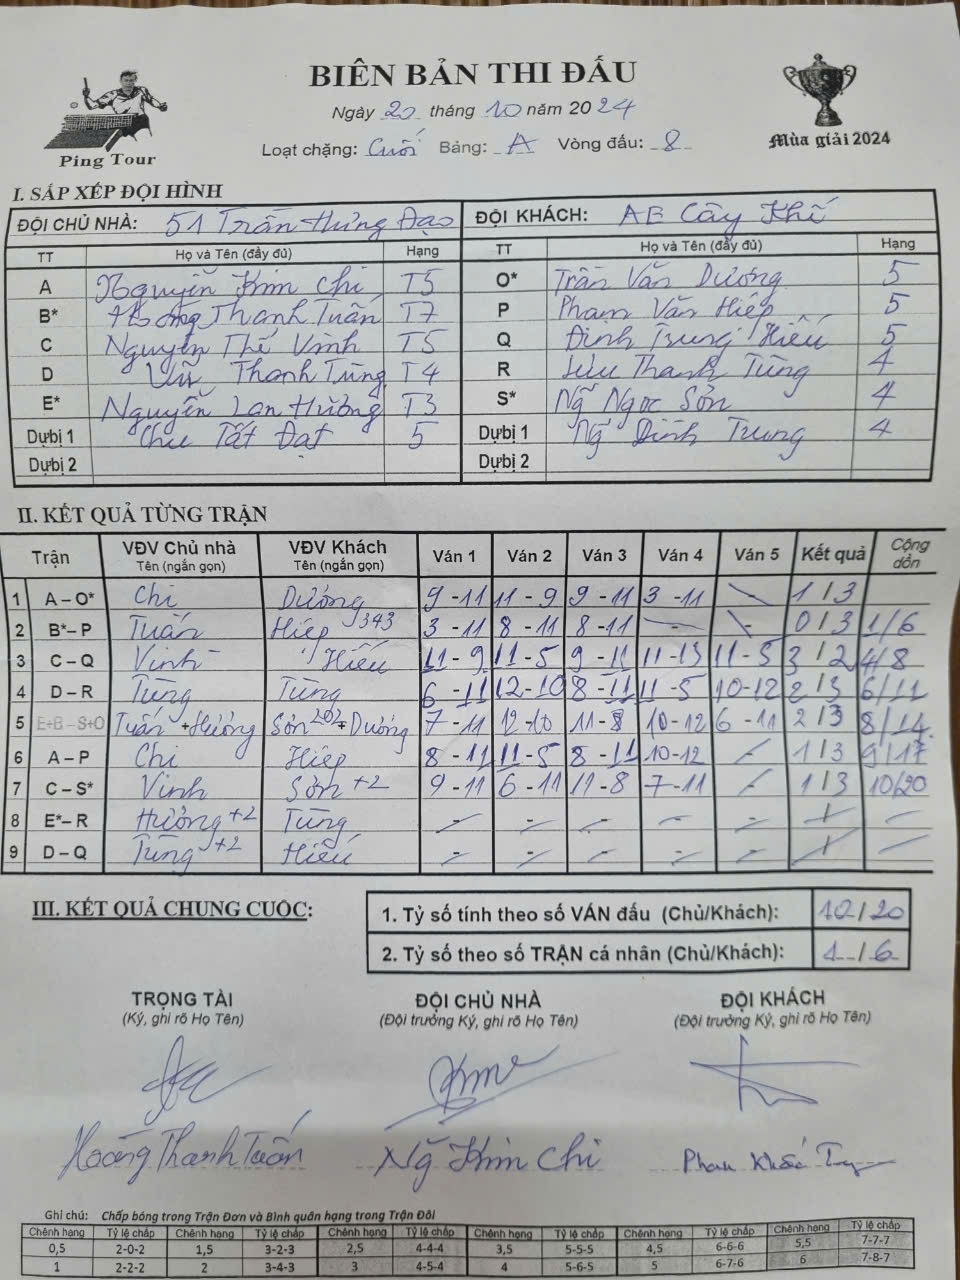 BIÊN BẢN THI ĐẤU
Ngày 20 tháng 10 năm 2024
Ping Tour
Loạt chặng: Cuối Bảng: A Vòng đấu: 8
Mùa giải 2024
I. SẮP XẾP ĐỘI HÌNH
ĐỘI CHỦ NHÀ: 51 Trần Hưng Đạo ĐỘI KHÁCH: AE Cây Khế
TT Họ và Tên (đầy đủ) Hạng TT Họ và Tên (đầy đủ) Hạng
A Nguyễn Kim Chi T5 O* Trần Văn Dương 5
B* Hoàng Thanh Tuấn T7 P Phạm Văn Hiệp 5
C Nguyễn Thế Vinh T5 Q Đinh Trung Hiếu 5
D Vũ Thanh Tùng T4 R Lưu Thanh Tùng 4
E* Nguyễn Lan Hương T3 S* Ng Ngọc Sơn 4
Dựbị 1 Chu Tất Đạt 5 Dựbị 1 Ng Đình Trung 4
Dựbị 2 Dựbị 2
II. KẾT QUẢ TỪNG TRẬN
Trận VĐV Chủ nhà Tên (ngắn gọn) VĐV Khách Tên (ngắn gọn) Ván 1 Ván 2 Ván 3 Ván 4 Ván 5 Kết quả Cộng dồn
1 A – O* Chi Dương 9 - 11 11 - 9 9 - 11 3 - 11 - 1 / 3
2 B* – P Tuấn Hiệp 343 3 - 11 8 - 11 8 - 11 - - 0 / 3 1/6
3 C – Q Vinh Hiếu 11 - 9 11 - 5 9 - 11 11 - 13 11 - 5 3 / 2 4/8
4 D – R Tùng Tùng 6 - 11 12 - 10 8 - 11 11 - 5 10 - 12 2 / 3 6/11
5 E+B – S+O Tuấn + Hương Sơn 202 + Dương 7 - 11 12 - 10 11 - 8 10 - 12 6 - 11 2 / 3 8/14
6 A – P Chi Hiệp 8 - 11 11 - 5 8 - 11 10 - 12 - 1 / 3 9/17
7 C – S* Vinh Sơn +2 9 - 11 6 - 11 11 - 8 7 - 11 - 1 / 3 10/20
8 E* – R Hương +2 Tùng - - - - - /
9 D – Q Tùng +2 Hiếu - - - - - /
III. KẾT QUẢ CHUNG CUỘC:
1. Tỷ số tính theo số VÁN đấu (Chủ/Khách): 10 / 20
2. Tỷ số theo số TRẬN cá nhân (Chủ/Khách): 1 / 6
TRỌNG TÀI ĐỘI CHỦ NHÀ ĐỘI KHÁCH
(Ký, ghi rõ Họ Tên) (Đội trưởng Ký, ghi rõ Họ Tên) (Đội trưởng Ký, ghi rõ Họ Tên)
Hoàng Thanh Tuấn Ng Kim Chi Phan Khắc
Ghi chú: Chấp bóng trong Trận Đơn và Bình quân hạng trong Trận Đôi
Chênh hạng Tỷ lệ chấp Chênh hạng Tỷ lệ chấp Chênh hạng Tỷ lệ chấp Chênh hạng Tỷ lệ chấp Chênh hạng Tỷ lệ chấp Chênh hạng Tỷ lệ chấp
0,5 2-0-2 1,5 3-2-3 2,5 4-4-4 3,5 5-5-5 4,5 6-6-6 5,5 7-7-7
1 2-2-2 2 3-4-3 3 4-5-4 4 5-6-5 5 6-7-6 6 7-8-7